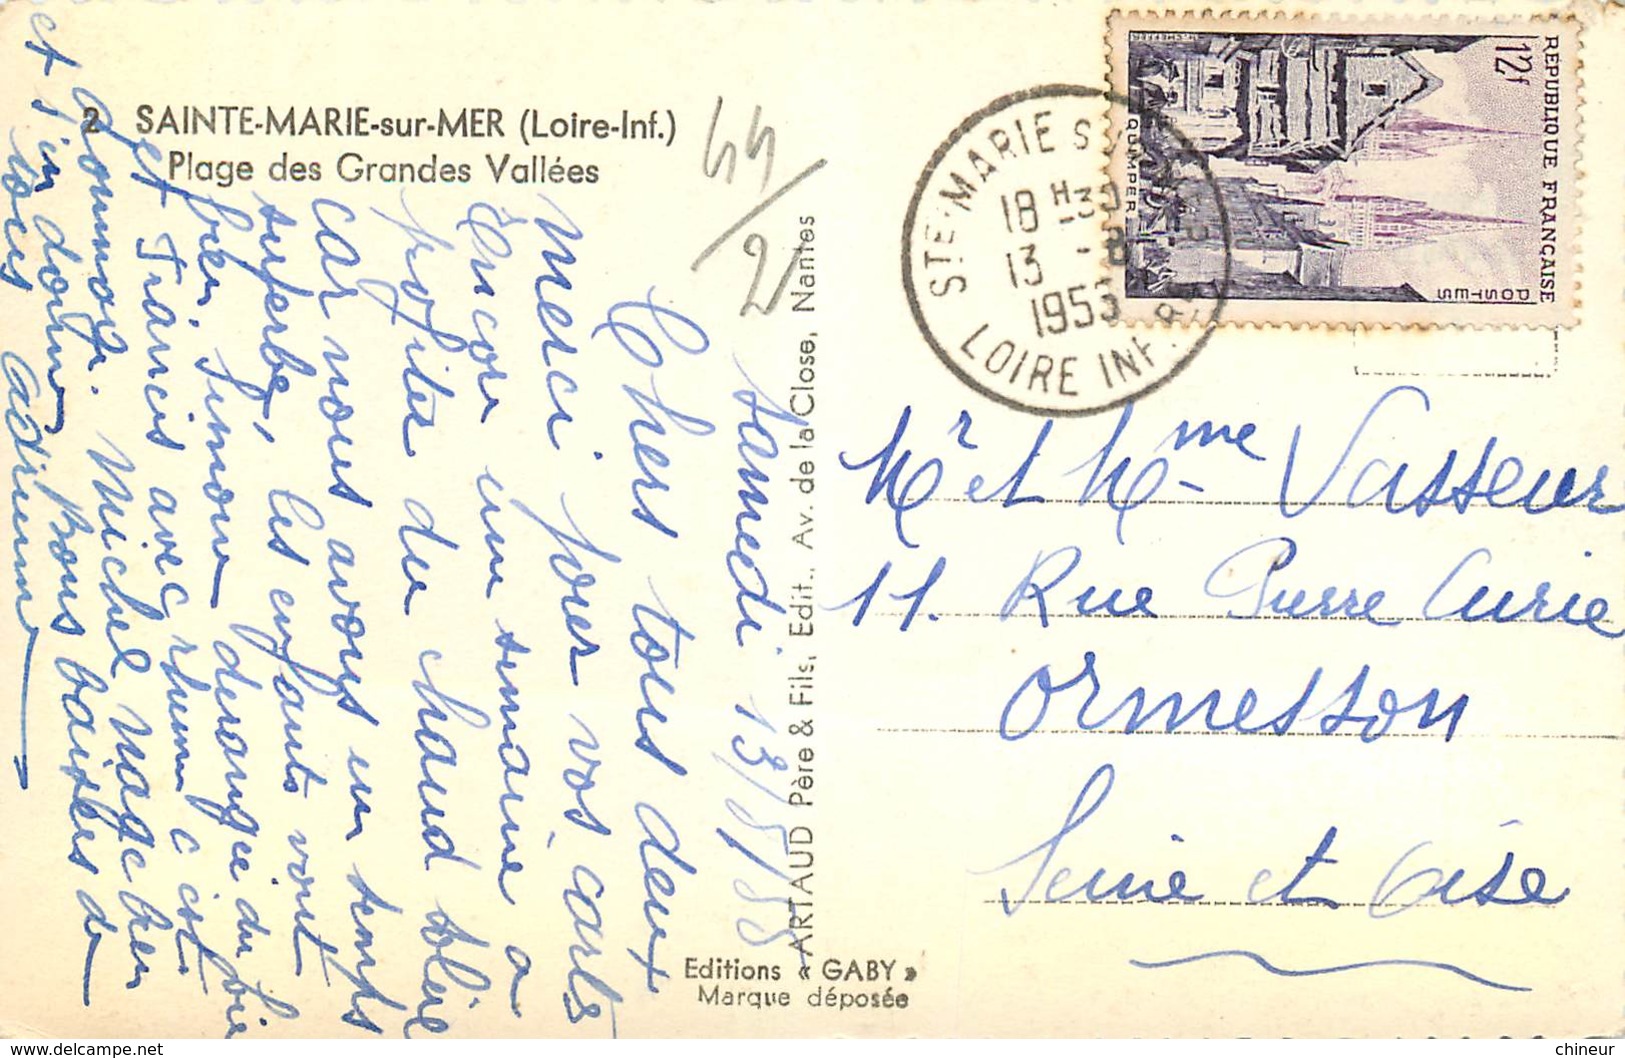 2 SAINTE-MARIE-sur-MER (Loire-Inf.)
Plage des Grandes Vallées
44/2
Samedi 13/8/55
Chers tous deux
merci pour vos carts
Encore une semaine a
profiter du chaud soleil
car nous avons un temps
superbe, les enfants vont
bien, Simone derangée du foie
et Francis avec rhume c'est
dommage. Michel nage bien
et s'en donne Bons baisers de
tous
ARTAUD Père & Fils, Edit., Av. de la Close, Nantes
Editions « GABY »
Marque déposée
STE MARIE S
18 H 30
13 - 8
1955
LOIRE INF.RE
REPUBLIQUE FRANÇAISE
12f
POSTES
QUIMPER
Mr et Mme Vasseur
11. Rue Pierre Curie
Ormesson
Seine et Oise
chineur